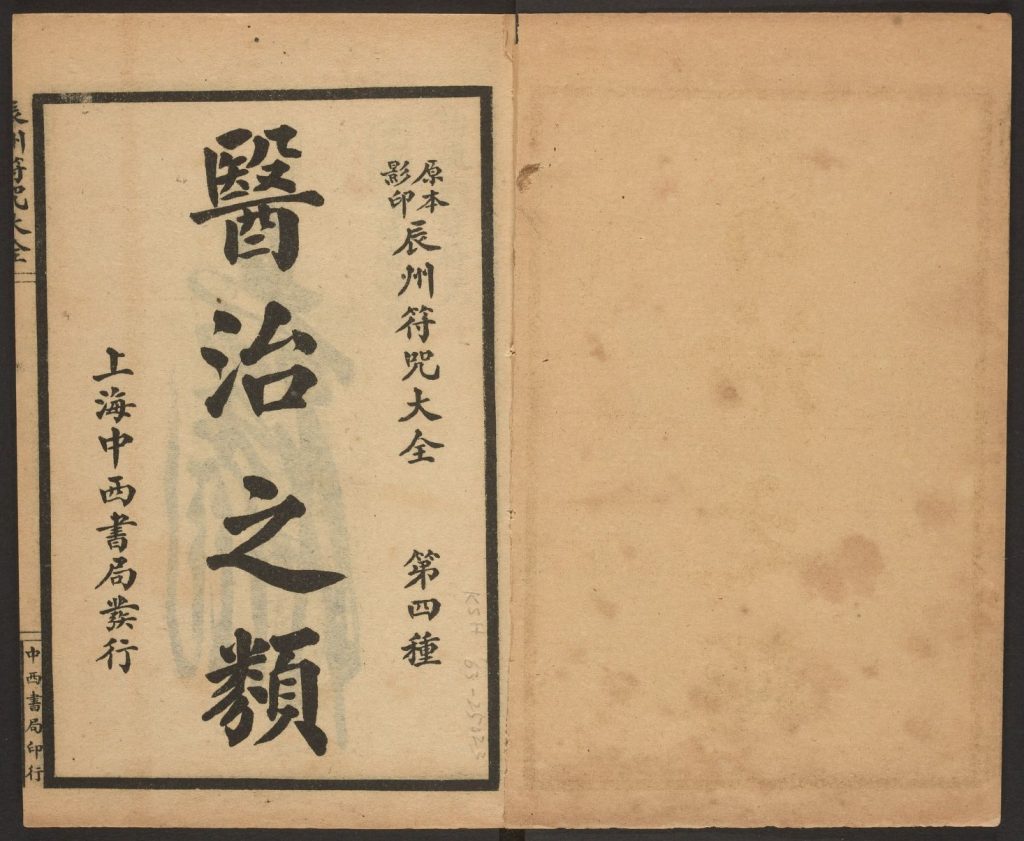 原本
影印
辰州符咒大全 第四種
醫治之類
上海中西書局發行
辰州符咒大全
中西書局印行